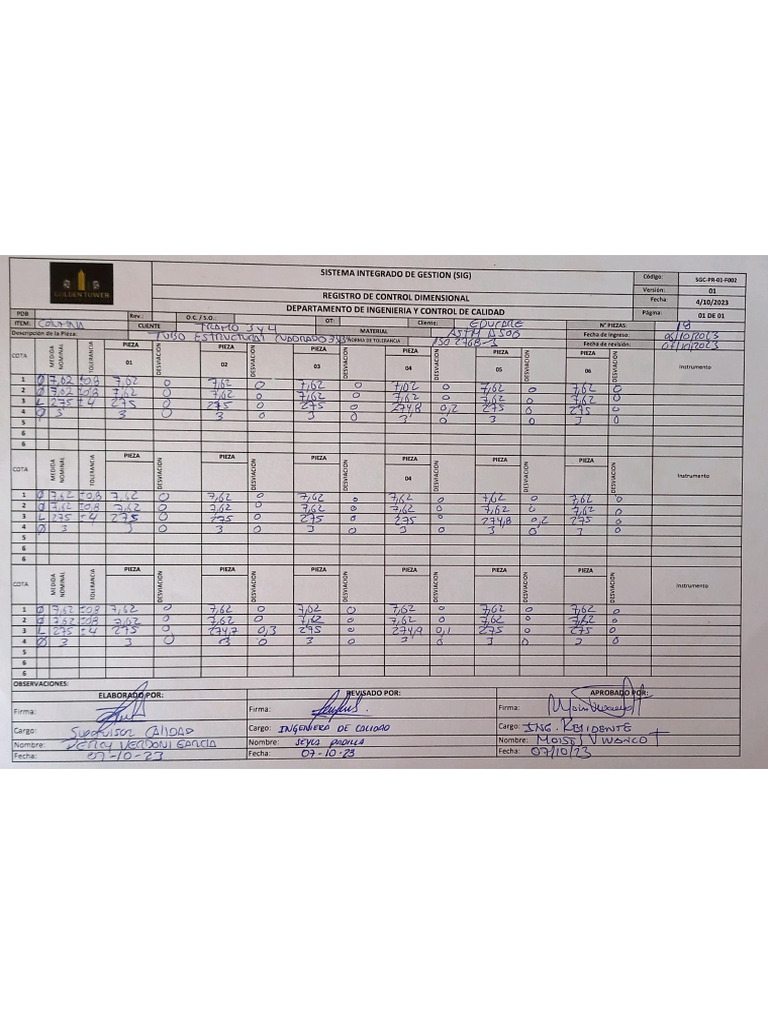 GOLDEN TOWER
SISTEMA INTEGRADO DE GESTION (SIG)
Código: SGC-PR-01-F002
Versión: 01
REGISTRO DE CONTROL DIMENSIONAL
Fecha: 4/10/2023
DEPARTAMENTO DE INGENIERIA Y CONTROL DE CALIDAD
Página: 01 DE 01
PDB Rev.: O.C. / S.O.: OT: Cliente: EDUCARE N° PIEZAS: 18
ITEM: COLUMNA CLIENTE TRAMO 3 y 4 MATERIAL ASTM A500 Fecha de ingreso: 06/10/2023
Descripción de la Pieza: TUBO ESTRUCTURAL CUADRADO 3x3 NORMA DE TOLERANCIA ISO 2768-1 Fecha de revisión: 07/10/2023
COTA MEDIDA NOMINAL TOLERANCIA PIEZA 01 DESVIACION PIEZA 02 DESVIACION PIEZA 03 DESVIACION PIEZA 04 DESVIACION PIEZA 05 DESVIACION PIEZA 06 DESVIACION Instrumento
1 Ø 7,62 ±0,8 7,62 0 7,62 0 7,62 0 7,62 0 7,62 0 7,62 0
2 Ø 7,62 ±0,8 7,62 0 7,62 0 7,62 0 7,62 0 7,62 0 7,62 0
3 L 275 ±4 275 0 275 0 275 0 274,8 0,2 275 0 275 0
4 Ø 3 3 0 3 0 3 0 3 0 3 0 3 0
5
6
6
COTA MEDIDA NOMINAL TOLERANCIA PIEZA DESVIACION PIEZA DESVIACION PIEZA DESVIACION PIEZA 04 DESVIACION PIEZA DESVIACION PIEZA DESVIACION Instrumento
1 Ø 7,62 ±0,8 7,62 0 7,62 0 7,62 0 7,62 0 7,62 0 7,62 0
2 Ø 7,62 ±0,8 7,62 0 7,62 0 7,62 0 7,62 0 7,62 0 7,62 0
3 L 275 ±4 275 0 275 0 275 0 275 0 274,8 0,2 275 0
4 Ø 3 3 0 3 0 3 0 3 0 3 0 3 0
5
6
6
COTA MEDIDA NOMINAL TOLERANCIA PIEZA DESVIACION PIEZA DESVIACION PIEZA DESVIACION PIEZA DESVIACION PIEZA DESVIACION PIEZA DESVIACION Instrumento
1 Ø 7,62 ±0,8 7,62 0 7,62 0 7,62 0 7,62 0 7,62 0 7,62 0
2 Ø 7,62 ±0,8 7,62 0 7,62 0 7,62 0 7,62 0 7,62 0 7,62 0
3 L 275 ±4 275 0 274,7 0,3 275 0 274,9 0,1 275 0 275 0
4 Ø 3 3 0 3 0 3 0 3 0 3 0 3 0
5
6
6
OBSERVACIONES:
ELABORADO POR: REVISADO POR: APROBADO POR:
Firma: Firma: Firma:
Cargo: Supervisor CALIDAD Cargo: INGENIERO DE CALIDAD Cargo: ING. RESIDENTE
Nombre: GARCIA Nombre: PADILLA Nombre: MOISES VIVANCO T
Fecha: 07-10-23 Fecha: 07-10-23 Fecha: 07/10/23